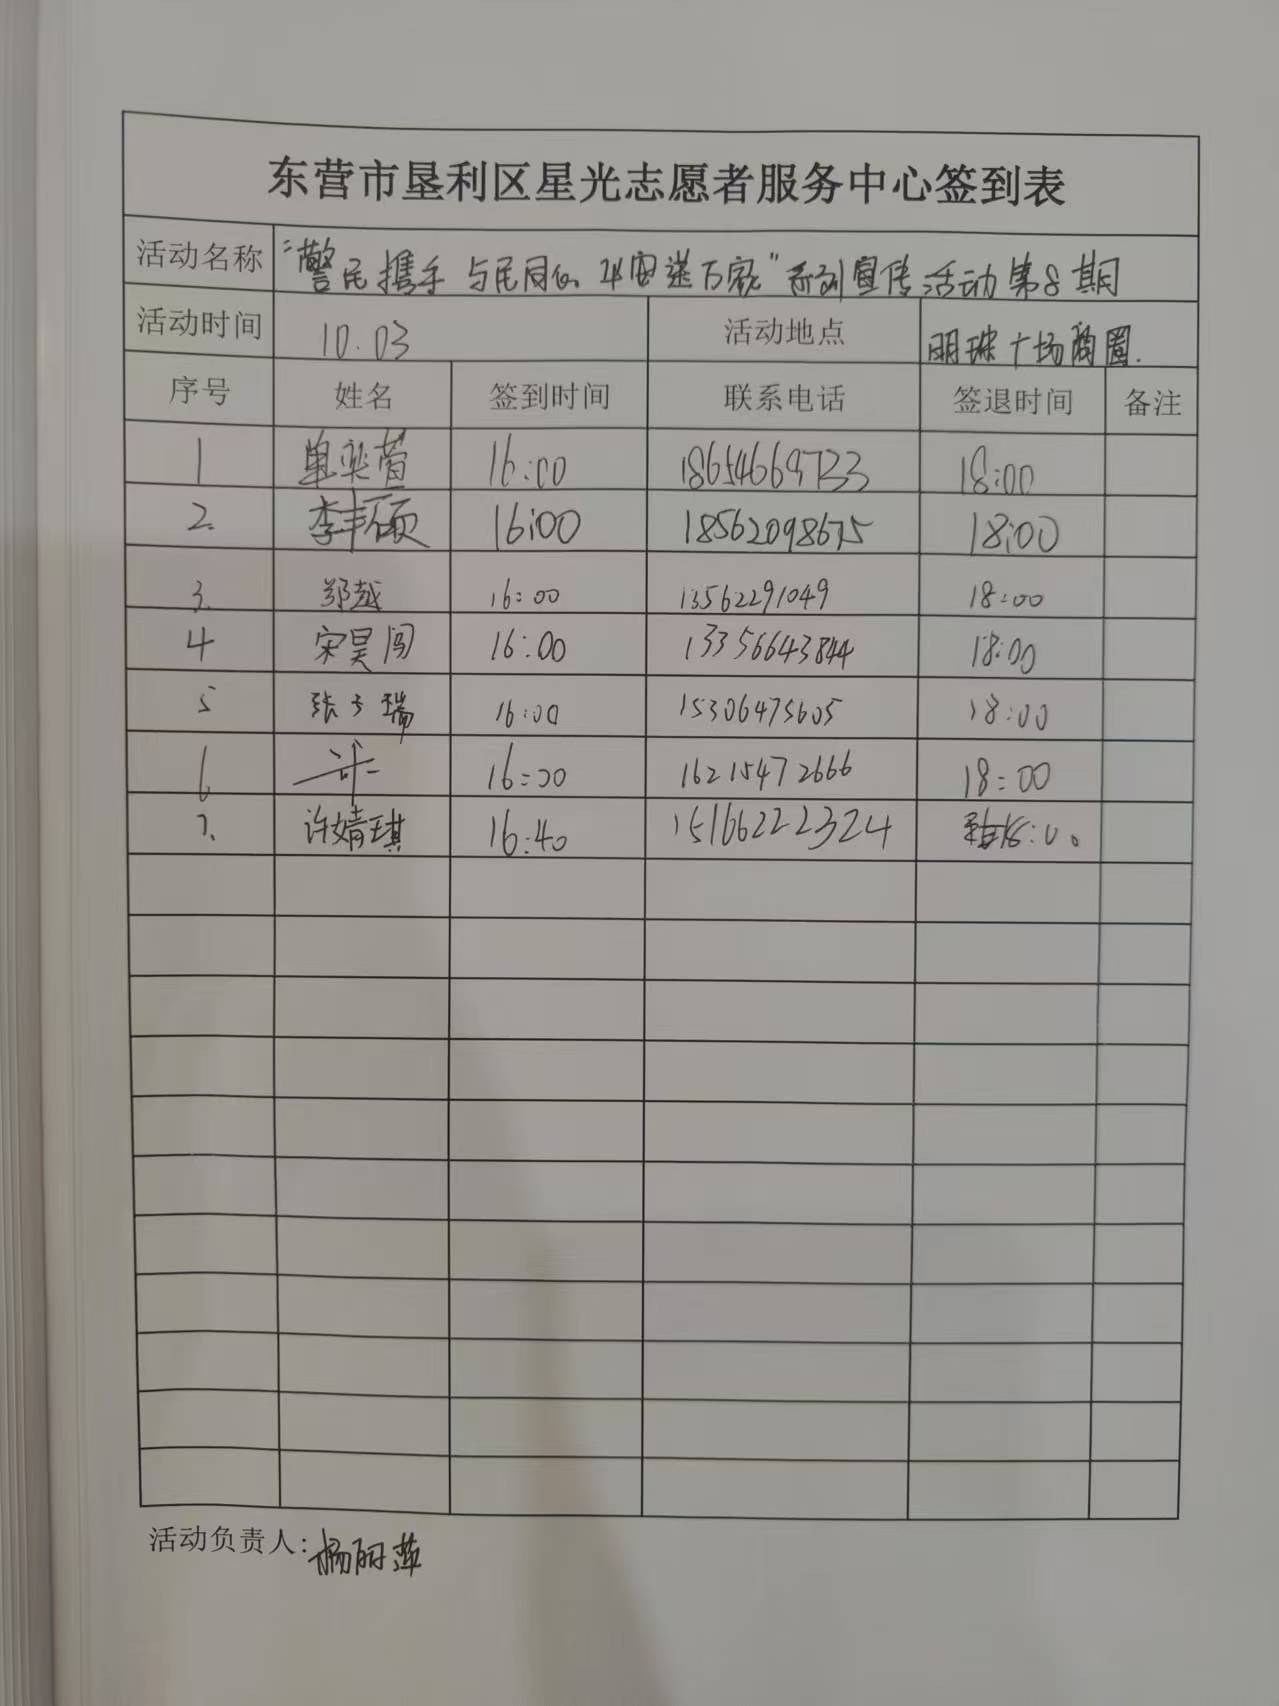 东营市垦利区星光志愿者服务中心签到表
活动名称 "警民携手 与民同心 平安送万家"系列宣传活动第8期
活动时间 10.03 活动地点 明珠广场商圈.
序号 姓名 签到时间 联系电话 签退时间 备注
1 单奕萱 16:00 18654669733 18:00
2. 李丰硕 16:00 18562098675 18:00
3. 郑越 16:00 13562291049 18:00
4 宋昊闯 16:00 13356643844 18:00
5 张子瑞 16:00 15306475605 18:00
6 16:00 16215472666 18:00
7. 许婧琪 16:40 15166222324
活动负责人: 杨丽萍